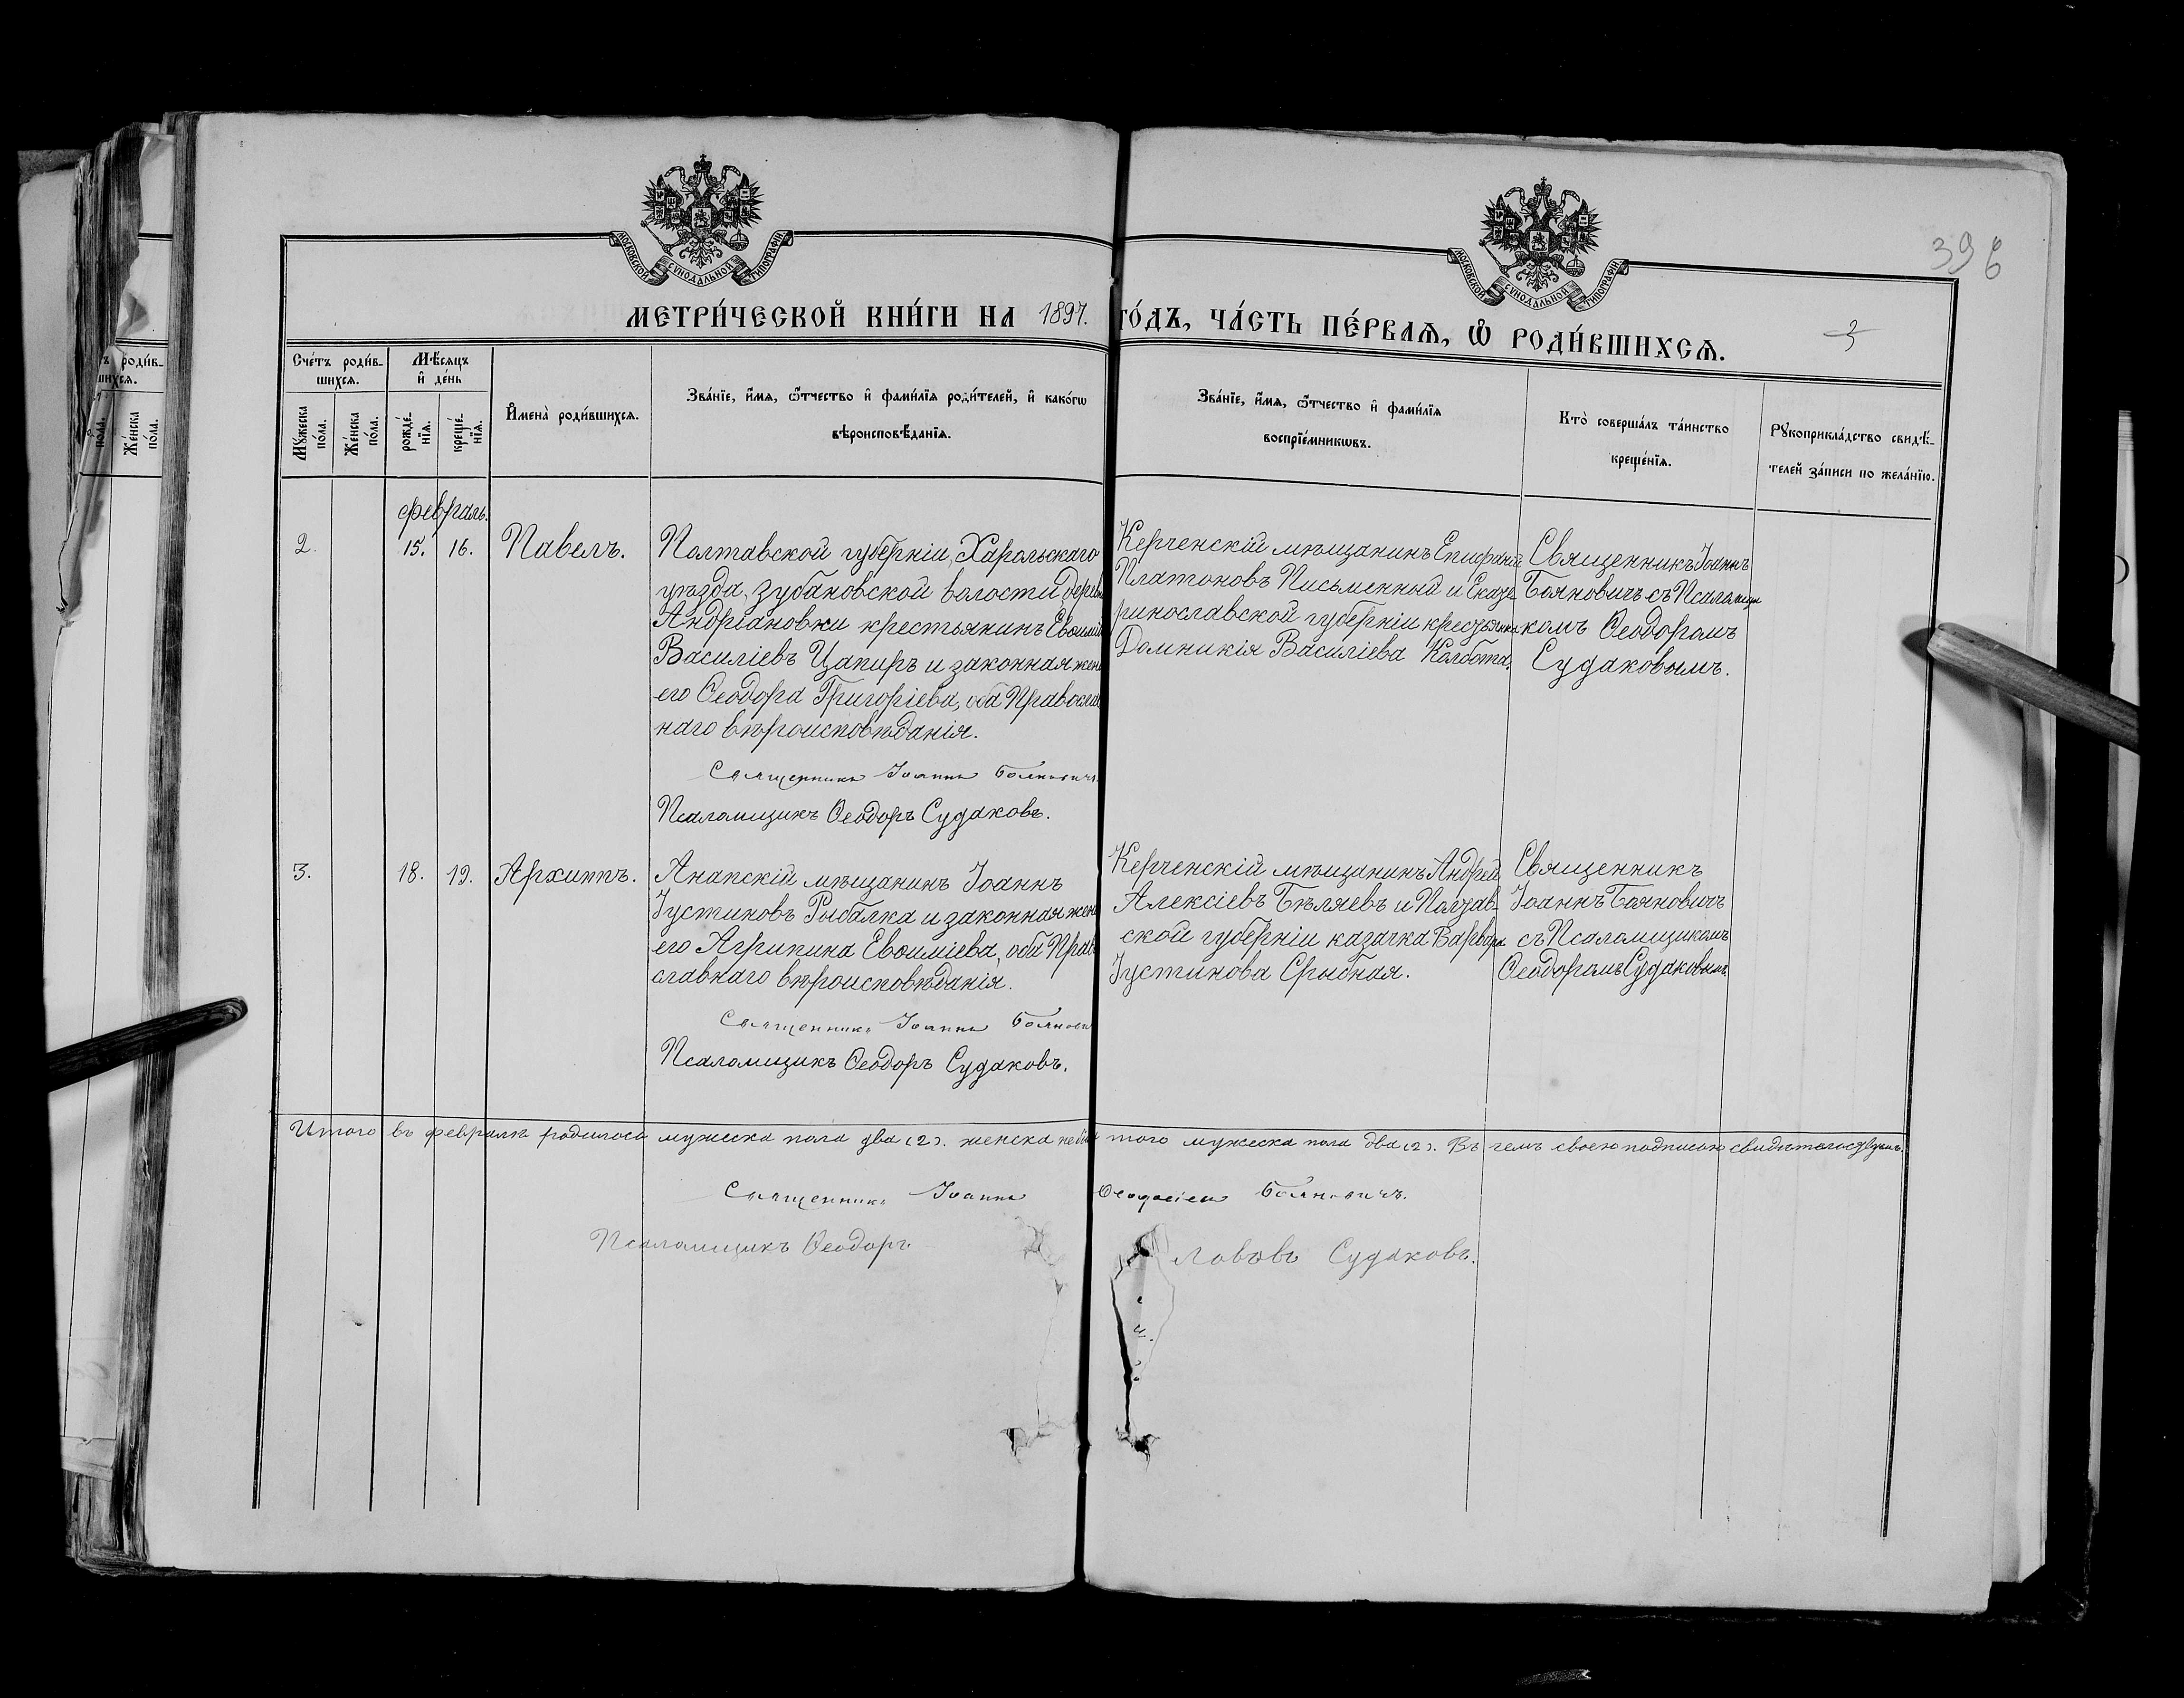 МОСКОВСКОЙ СѴНОДАЛЬНОЙ ТИПОГРАФІИ
МОСКОВСКОЙ СѴНОДАЛЬНОЙ ТИПОГРАФІИ
396
МЕТРИ́ЧЕСКОЙ КНИ́ГИ НА 1897. ГО́ДЪ, ЧА́СТЬ ПЕ́РВАѦ, Ѡ҆ РОДИ́ВШИХСѦ.
2
Сче́тъ роди́в-
шихсѧ.
Мꙋ́жеска по́ла.
Же́нска по́ла.
Мѣ́сѧцъ
и҆ де́нь
рожде́-
нїѧ.
креще́-
нїѧ.
И҆мена̀ роди́вшихсѧ.
Зва́нїе, и҆́мѧ, ѻ҆́тчество и҆ фами́лїѧ роди́телей, и҆ како́гѡ
вѣроисповѣ́данїѧ.
Зва́нїе, и҆́мѧ, ѻ҆́тчество и҆ фами́лїѧ
воспрїе́мникѡвъ.
Кто̀ соверша́лъ та́инство
креще́нїѧ.
Рꙋкоприкла́дство свидѣ́-
телей за́писи по жела́нїю.
февраль.
2.
15.
16.
Павелъ.
Полтавской губерніи, Харольскаго
уѣзда, Зубановской волости, дерев
Андріановки крестьянинъ Евѳимій
Василіевъ Цапиръ и законная жена
его Ѳеодора Григоріева, оба Правосла
наго вѣроисповѣданія.
Священникъ Іоаннъ Бояновичъ
Псаломщикъ Ѳеодоръ Судаковъ.
Керченскій мѣщанинъ Епифаній
Платоновъ Письменный и Екате
ринославской губерніи крестьянка
Домникія Василіева Колбота.
Священникъ Іоаннъ
Бояновичъ съ Псаломщи
комъ Ѳеодоромъ
Судаковымъ.
3.
18.
19.
Архиппъ.
Анапскій мѣщанинъ Іоаннъ
Іустиновъ Рыбалка и законная жена
его Агрипина Евѳиміева, оба Право
славнаго вѣроисповѣданія.
Священникъ Іоаннъ Боянови
Псаломщикъ Ѳеодоръ Судаковъ.
Керченскій мѣщанинъ Андрей
Алексіевъ Бѣляевъ и Полтав-
ской губерніи казачка Варвара
Іустинова Срыбная.
Священникъ
Іоаннъ Бояновичъ
съ Псаломщикомъ
Ѳеодоромъ Судаковымъ
Итого въ февралѣ родилось мужеска пола два (2). женска небы того мужеска пола два (2). Въ чемъ своею подписью свидѣтельствуемъ.
Священникъ Іоаннъ Ѳеодосіевъ Бояновичъ.
Псаломщикъ Ѳеодоръ Судаковъ.